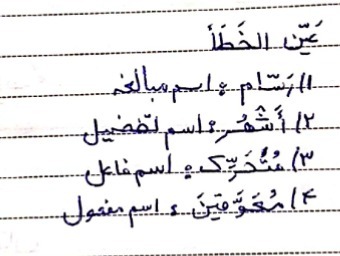 عَيِّن الخَطَأ
۱) رَسّام : اسم مبالغه
۲) أَشْهُر : اسم تفضیل
۳) مُتَّحَرِّک : اسم فاعل
۴) مُعَوَّقینَ : اسم مفعول